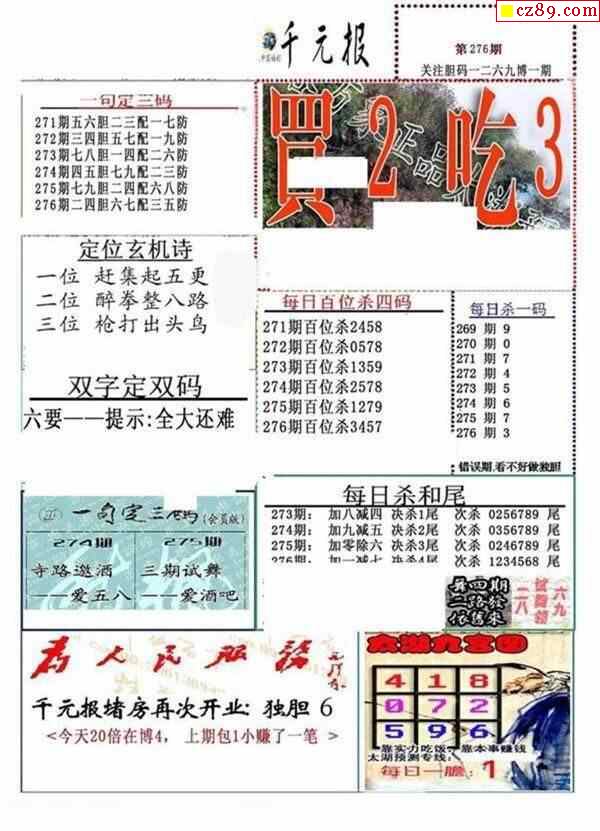 cz89.com
千元报
第276期
关注胆码一二六九博一期
一句定三码
271期五六胆二三配一七防
272期三四胆五七配一九防
273期七八胆一四配二六防
274期四五胆七九配二三防
275期七九胆二四配六八防
276期二四胆六七配三五防
買2吃3
正品
定位玄机诗
一位 赶集起五更
二位 醉拳整八路
三位 枪打出头鸟
双字定双码
六要——提示:全大还难
每日百位杀四码
271期百位杀2458
272期百位杀0578
273期百位杀1359
274期百位杀2578
275期百位杀1279
276期百位杀3457
每日杀一码
269 期 9
270 期 0
271 期 7
272 期 4
273 期 5
274 期 6
275 期 7
276 期 3
错误期,看不好做独胆
一句定三码(会员版)
274期
寺路邀酒
——爱五八
275期
三期试舞
——爱酒吧
每日杀和尾
273期: 加八减四 决杀1尾 次杀 0256789 尾
274期: 加九减五 决杀2尾 次杀 0356789 尾
275期: 加零除六 决杀3尾 次杀 0246789 尾
276期: 加一减七 决杀4尾 次杀 1234568 尾
二八
六九
为人民服务
千元报堵房再次开业: 独胆 6
<今天20倍在博4, 上期包1小赚了一笔 >
太湖九宫图
4 1 8
0 7 2
5 9 6
靠实力吃饭, 靠本事赚钱
太湖预测专线:
每日一胆: 1